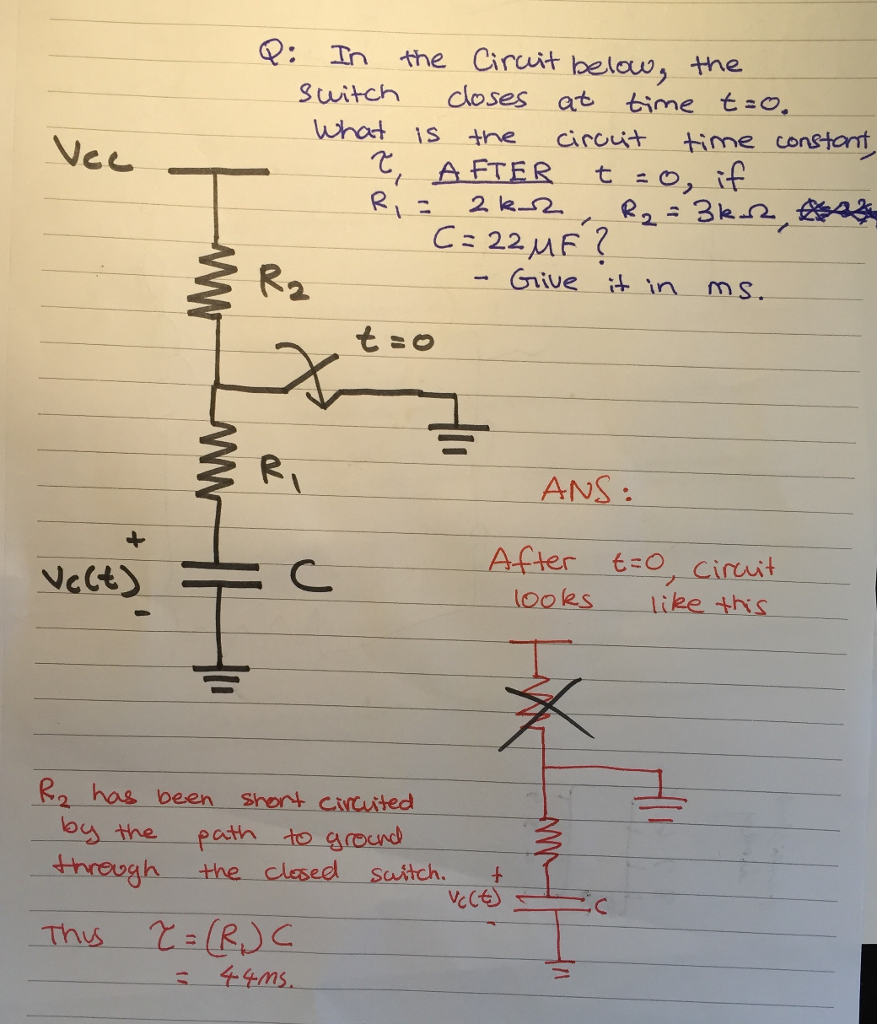 Q: In the Circuit below, the
switch closes at time t=0.
What is the circuit time constant,
τ, AFTER t = 0, if
R₁ = 2kΩ, R₂ = 3kΩ,
C = 22μF?
- Give it in ms.
Vcc
R₂
t=0
R₁
+
Vc(t)
-
C
ANS:
After t=0, circuit
looks like this
R₂ has been short circuited
by the path to ground
through the closed switch.
+
Vc(t)
-
C
Thus τ = (R₁) C
= 44ms.